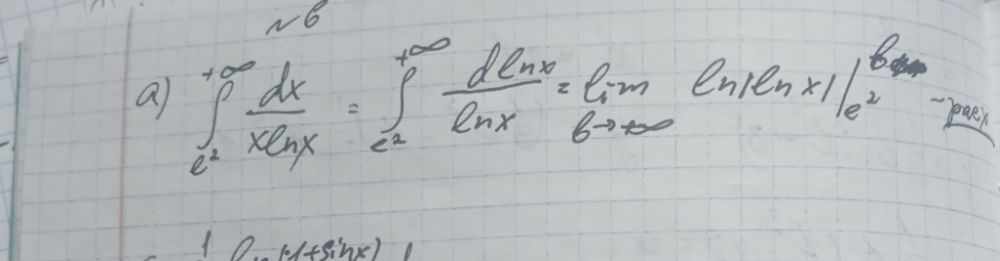 №6
а) ∫_{e²}^{+∞} dx/(x ln x) = ∫_{e²}^{+∞} d ln x/ln x = lim_{b→+∞} ln|ln x| |_{e²}^{b} - расх
1 ln(1+sinx) 1